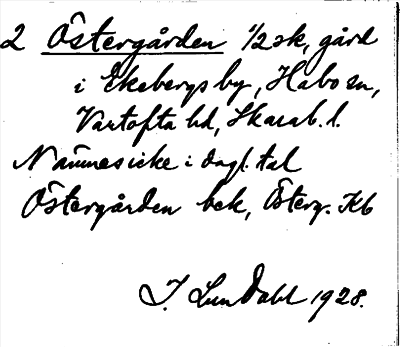 2 Östergården 1/2 sk, gård
i Ekebergs by, Habo sn,
Vartofta hd, Skarab. l.
Nämnes icke i dagl. tal
Östergården bek, Österg. Kb
J. Lundahl 1928.